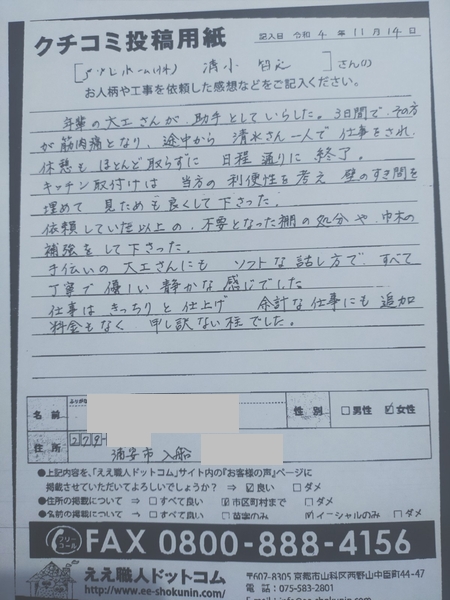 クチコミ投稿用紙
記入日 令和 4 年 11 月 14 日
さんの
お人柄や工事を依頼した感想などをご記入ください。
年輩の大工さんが、助手としていらした。3日間で、その方
が筋肉痛となり、途中から 清水さん一人で仕事をされ、
休憩も ほとんど取らずに 日程通りに 終了。
キッチン取付けは 当方の利便性を考え 壁のすき間を
埋めて 見ためも良くして下さった。
依頼していた以上の、不要となった棚の処分や、巾木の
補強をして下さった。
手伝いの大工さんにも ソフトな話し方で、すべて
丁寧で優しい静かな感じでした
仕事は きっちりと仕上げ 余計な仕事にも 追加
料金もなく 申し訳ない程でした。
ふりがな
名前
性別 □男性 ☑女性
住所 279-
浦安市 入船
●上記内容を、「ええ職人ドットコム」サイト内の『お客様の声』ページに
掲載させていただいてよろしいでしょうか? ⇒ ☑良い □ダメ
●住所の掲載について ⇒ □すべて良い ☑市区町村まで □ダメ
●名前の掲載について ⇒ □すべて良い □苗字のみ ☑イニシャルのみ □ダメ
フリーコール FAX 0800-888-4156
ええ職人ドットコム
http://www.ee-shokunin.com/
〒607-8305 京都市山科区西野山中臣町44-47
電話:075-583-2801